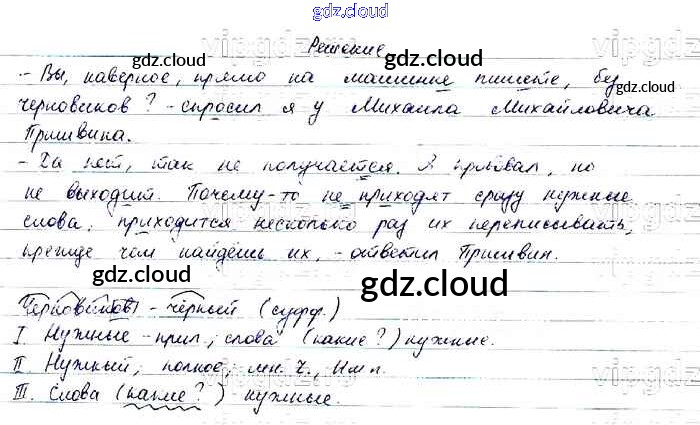 gdz.cloud
Решение
- Вы, наверное, прямо на машинке пишете, без
черновиков? - спросил я у Михаила Михайловича
Пришвина.
- Да нет, так не получается. Я пробовал, но
не выходит. Почему-то не приходят сразу нужные
слова, приходится несколько раз их переписывать,
прежде чем найдёшь их, - ответил Пришвин.
gdz.cloud
gdz.cloud
gdz.cloud
gdz.cloud
Черновиков - чёрный (суфф.)
I. Нужные - прил., слова (какие?) нужные.
II. Нужный, полное, мн. ч., Им п.
III. Слова (какие?) - нужные.
gdz.cloud